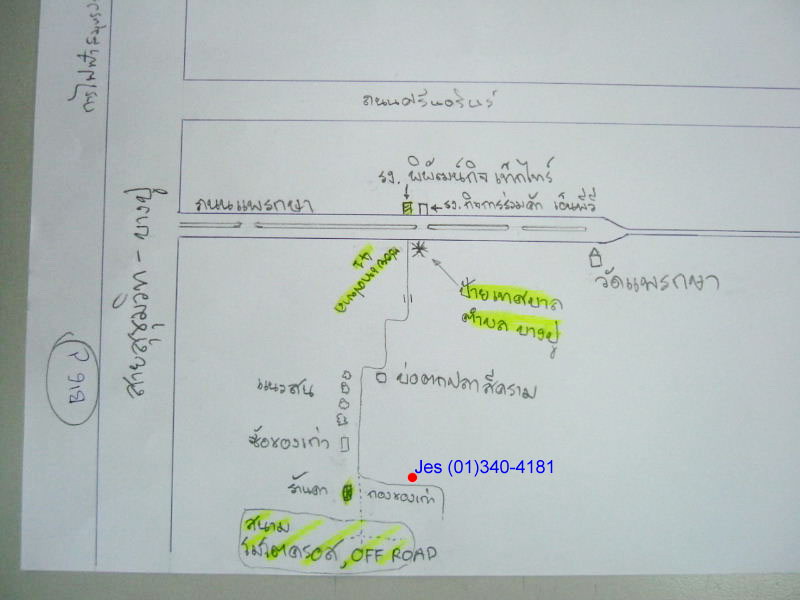 การไฟฟ้าสมุทรปร
ถนนศรีนครินทร์
รง. พิพัฒน์กิจ เท็กไทร์
ถนนแพรกษา
รง. กิจการร่วมค้า เอ็นพีวี
สายสุขุมวิท - บางปู
วัดแพรกษา
ป้ายเทศบาล
ตำบล บางปู
BIG
แนวสน
บ่อตกปลา สีคราม
ซื้อของเก่า
Jes (01)340-4181
ร้านค้า
กองของเก่า
สนาม
โมโตครอส, OFF ROAD